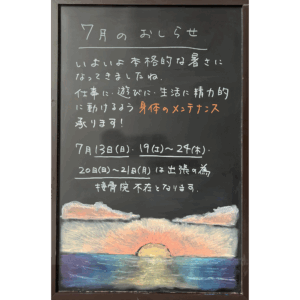 7月のおしらせ
いよいよ本格的な暑さに
なってきましたね。
仕事に・遊びに・生活に精力的
に動けるよう身体のメンテナンス
承ります!
7月13日(日)・19(土)〜24(木)・
20日(日)〜21日(月)は出張の為
接骨院不在となります。